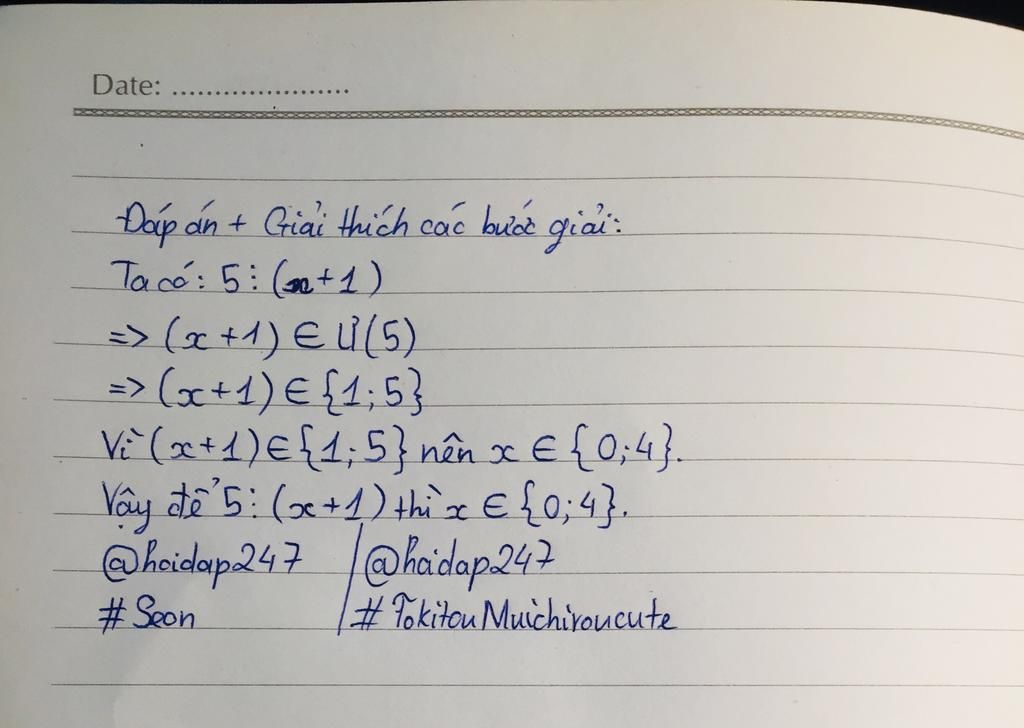 Date: .....................
Đáp án + Giải thích các bước giải:
Ta có: 5 ⋮ (x+1)
=> (x+1) ∈ Ư(5)
=> (x+1) ∈ {1;5}
Vì (x+1) ∈ {1;5} nên x ∈ {0;4}.
Vậy để 5 ⋮ (x+1) thì x ∈ {0;4}.
@hoidap247 / @hoidap247
#Seon / #TokitouMuichiroucute